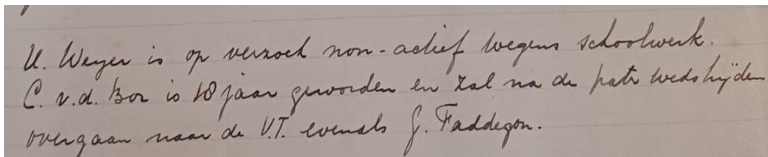 U. Weyer is op verzoek non-actief wegens schoolwerk.
C. v.d. Bor is 18 jaar geworden en zal na de patr. wedstrijden
overgaan naar de V.T. evenals J. Faddegon.